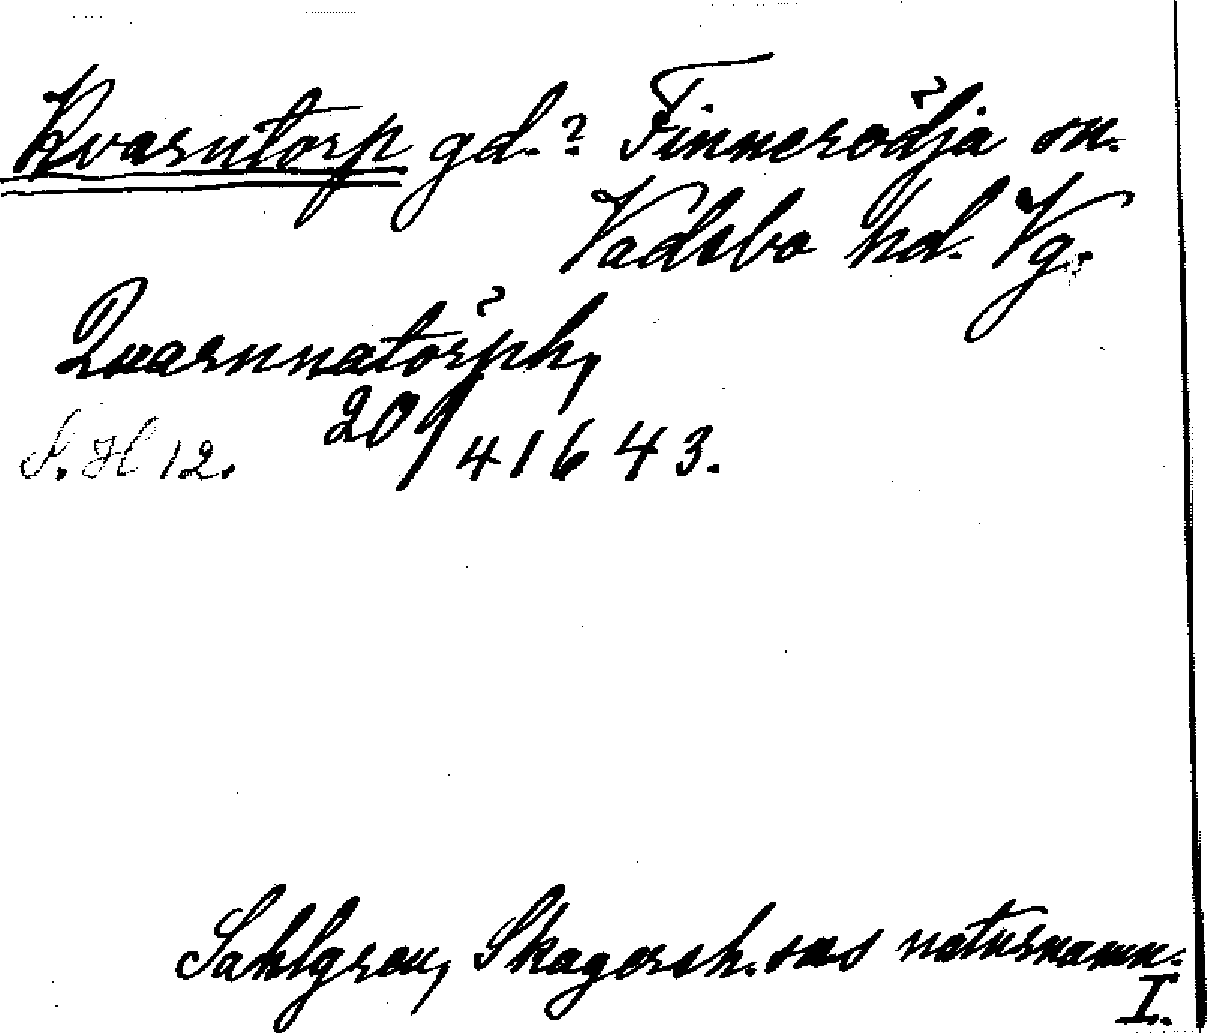 Kvarntorp gd.? Finnerödja sn.
Vadsbo hd. Vg.
Quarnnatörph,
S. H 12. 20/4 1643.
Sahlgren, Skagersh. sns naturnamn.
I.